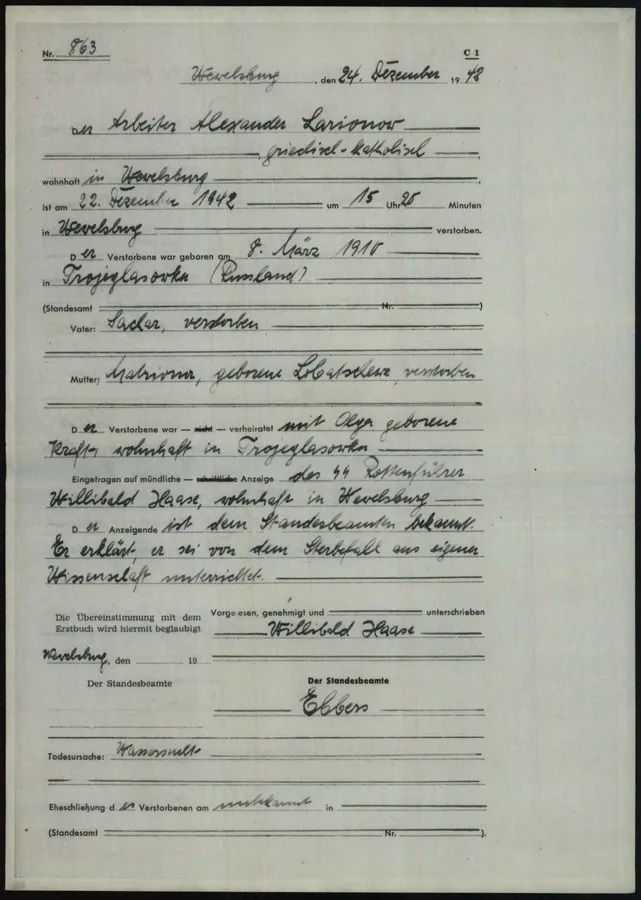 Nr. 863 C 1
Wewelsburg, den 24. Dezember 19 42
Der Arbeiter Alexander Larionow
, griechisch-katholisch,
wohnhaft in Wewelsburg,
ist am 22. Dezember 1942 um 15 Uhr 25 Minuten
in Wewelsburg verstorben.
Der Verstorbene war geboren am 8. März 1910
in Trojeglasowka (Russland)
(Standesamt Nr. )
Vater: Sachar, verstorben
Mutter: Matriona, geborene verstorben
Der Verstorbene war — nicht — verheiratet mit Olga geborene
wohnhaft in Trojeglasowka
Eingetragen auf mündliche — schriftliche Anzeige des SS Rottenführer
Willibald Haase, wohnhaft in Wewelsburg
Der Anzeigende ist dem Standesbeamten bekannt.
Er erklärt, er sei von dem Sterbefall aus eigener
Wissenschaft unterrichtet.
Die Übereinstimmung mit dem
Erstbuch wird hiermit beglaubigt
Vorgelesen, genehmigt und unterschrieben
Willibald Haase
Wewelsburg, den 19
Der Standesbeamte
Der Standesbeamte
Ebbers
Todesursache: Wassersucht
Eheschließung der Verstorbenen am unbekannt in
(Standesamt Nr. ).